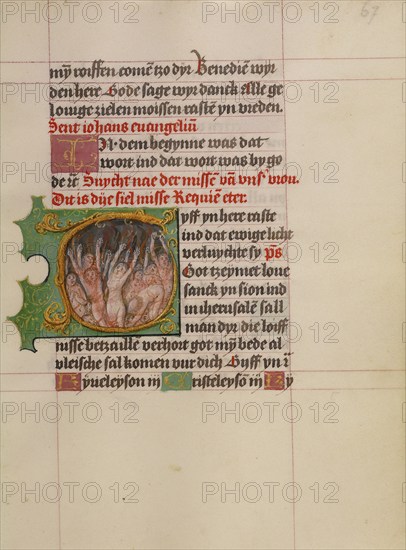 67
mÿ roiffen comē tzo dÿr Benedīē wÿr
den here Gode sage wÿr danck Alle ge
louige zielen moissen rastē ÿn vreden.
Sent iohans euangeliū
IN dem begynne was dat
wort ind dat wort was by go
de rē Snycht nae der missē vā vnsʳ vrou.
Dit is dÿe siel misse Requiē eter.
Gyff yn here raste
ind dat ewige licht
verluychte sy pˢ
Got tzeymet loue
sanck yn sion ind
in iherusalē sall
man dyr die loiff
nisse betzaille verhort got mÿ bede al
vleische sal komen vur dich Gyff yn rē
Kyrieleyson iij Cristeleysō iij Ky
PHOTO12 PHOTO12 PHOTO12